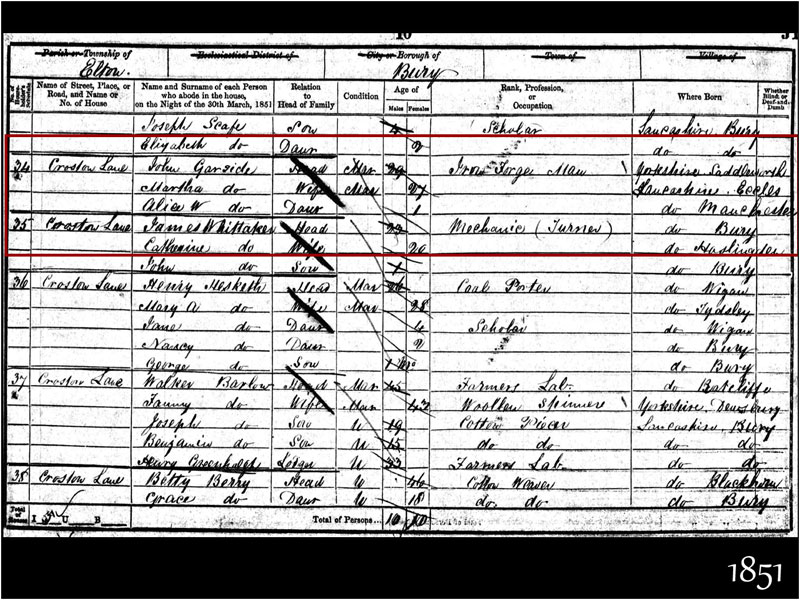 10
Parish or Township of Ecclesiastical District of City or Borough of Town of Village of
Elton. Bury
Name of Street, Place, or Road, and Name or No. of House
Name and Surname of each Person who abode in the house, on the Night of the 30th March, 1851
Relation to Head of Family
Condition
Age of Males Females
Rank, Profession, or Occupation
Where Born
Whether Blind or Deaf-and-Dumb
Joseph Scape Son 4 Scholar Lancashire Bury
Elizabeth do Daur 2 do do
34 Croston Lane John Garside Head Mar 29 Iron Forge Man Yorkshire Saddleworth
Martha do Wife Mar 27 Lancashire Eccles
Alice W do Daur 1 do Manchester
35 Croston Lane James Whittaker Head 23 Mechanic (Turner) do Bury
Catherine do Wife 20 do Haslingden
John do Son 1 do Bury
36 Croston Lane Henry Hesketh Head Mar 26 Coal Porter do Wigan
Mary A do Wife Mar 28 do Tydsley
Jane do Daur 4 Scholar do Wigan
Nancy do Daur 2 do Bury
George do Son 1 do Bury
37 Croston Lane Walker Barlow Head Mar 45 Farmers Lab. do Ratcliffe
Fanny do Wife Mar 42 Woollen Spinner Yorkshire Dewsbury
Joseph do Son U 19 Cotton Piecer Lancashire Bury
Benjamin do Son U 15 do do do do
Henry Greenhalgh Lodger U 33 Farmers Lab. do do
38 Croston Lane Betty Berry Head U 46 Cotton Weaver do Blackburn
Grace do Daur U 18 do. do. do Bury
Total of Houses I U B Total of Persons... 10 10
1851